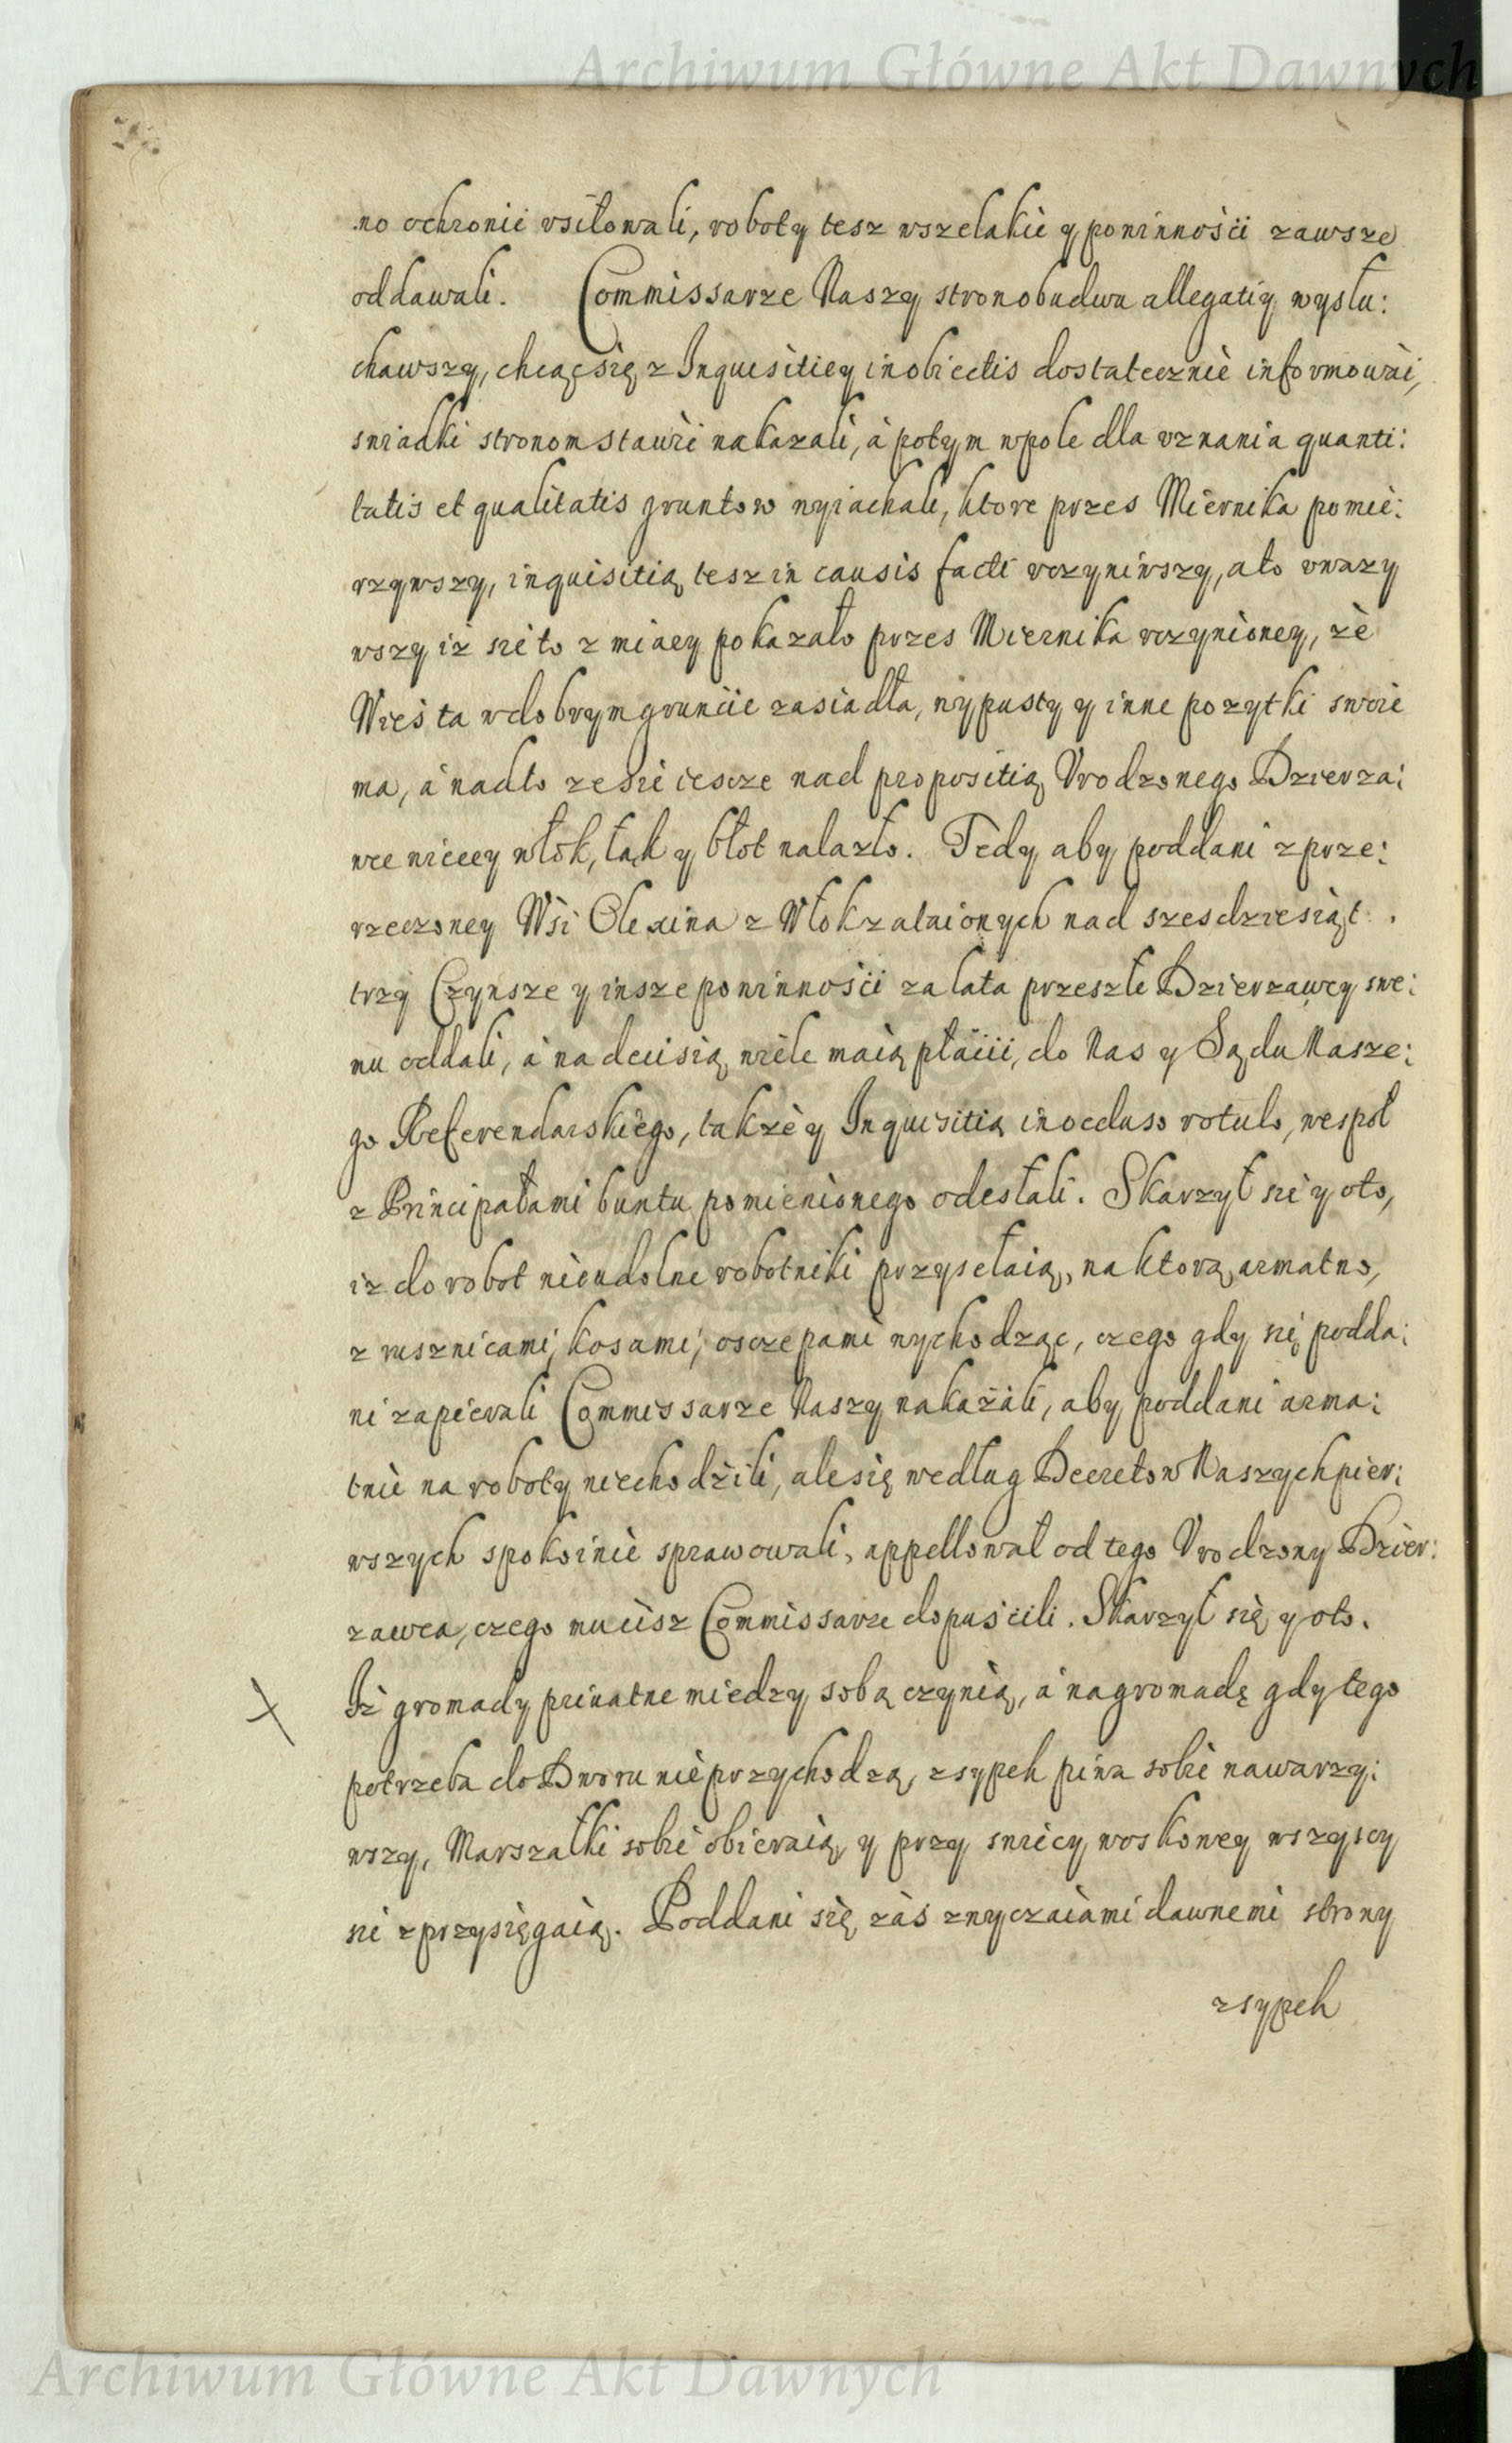 Archiwum Główne Akt Dawnych
no ochronić vsiłowali, roboty tesz wszelakie y powinności zawsze
oddawali. Commissarze Naszy stron obudwu allegatiy wysłu:
chawszy, chcąc się z Inquisitiey in obiectis dostatecznie informowáć,
swiadki stronom stawić nakazali, á potym w pole dla vznania quanti:
tatis et qualitatis gruntow wyiachali, ktore przes Miernika pomie:
rzywszy, inquisitią tesz in causis facti vczyniwszy, a to vwazy
wszy iż sie to z miary pokazało przes Miernika vczynioney, że
Wieś ta w dobrym gruncie zasiadła, wypusty y inne pozytki swoie
ma, á nadto ze sie iescze nad propositią Vrodzonego Dzierza:
wce wiecey włok, łąk y błot nalazło. Tedy aby poddani z prze:
rzeczoney Wsi Olexina z Włok zataionych nad szesdziesiąt
trzy Czynsze y insze powinności za lata przeszłe Dzierzawcy swe:
mu oddali, á na decisią wiele maią płacić, do Nas y Sądu Nasze:
go Referendarskiego, także y Inquisitią in occluso rotulo, wespoł
z Principałami buntu pomienionego odesłali. Skarzył sie y o to,
iz do robot nieudolne robotniki przysełaią, na ktorą armatno,
z rusznicami, kosami, osczepami wychodząc, czego gdy się podda:
ni zapierali Commissarze Naszy nakazáli, aby poddani arma:
tnie na roboty niechodzili, ale się według Decretow Naszych pier:
wszych spokoinie sprawowali, appellował od tego Vrodzony Dzier:
zawca, czego mu cisz Commissarze dopuscili. Skarzył się y o to.
Iż gromady priuatne miedzy sobą czynią, á na gromadę gdy tego
potrzeba do Dworu nie przychodzą, zsypek piwa sobie nawarzy:
wszy, Marszałki sobie obieraią, y przy swiecy woskowey wszyscy
sie zprzysięgaią. Poddani się záś zwyczaiami dawnemi strony
zsypek
Archiwum Główne Akt Dawnych